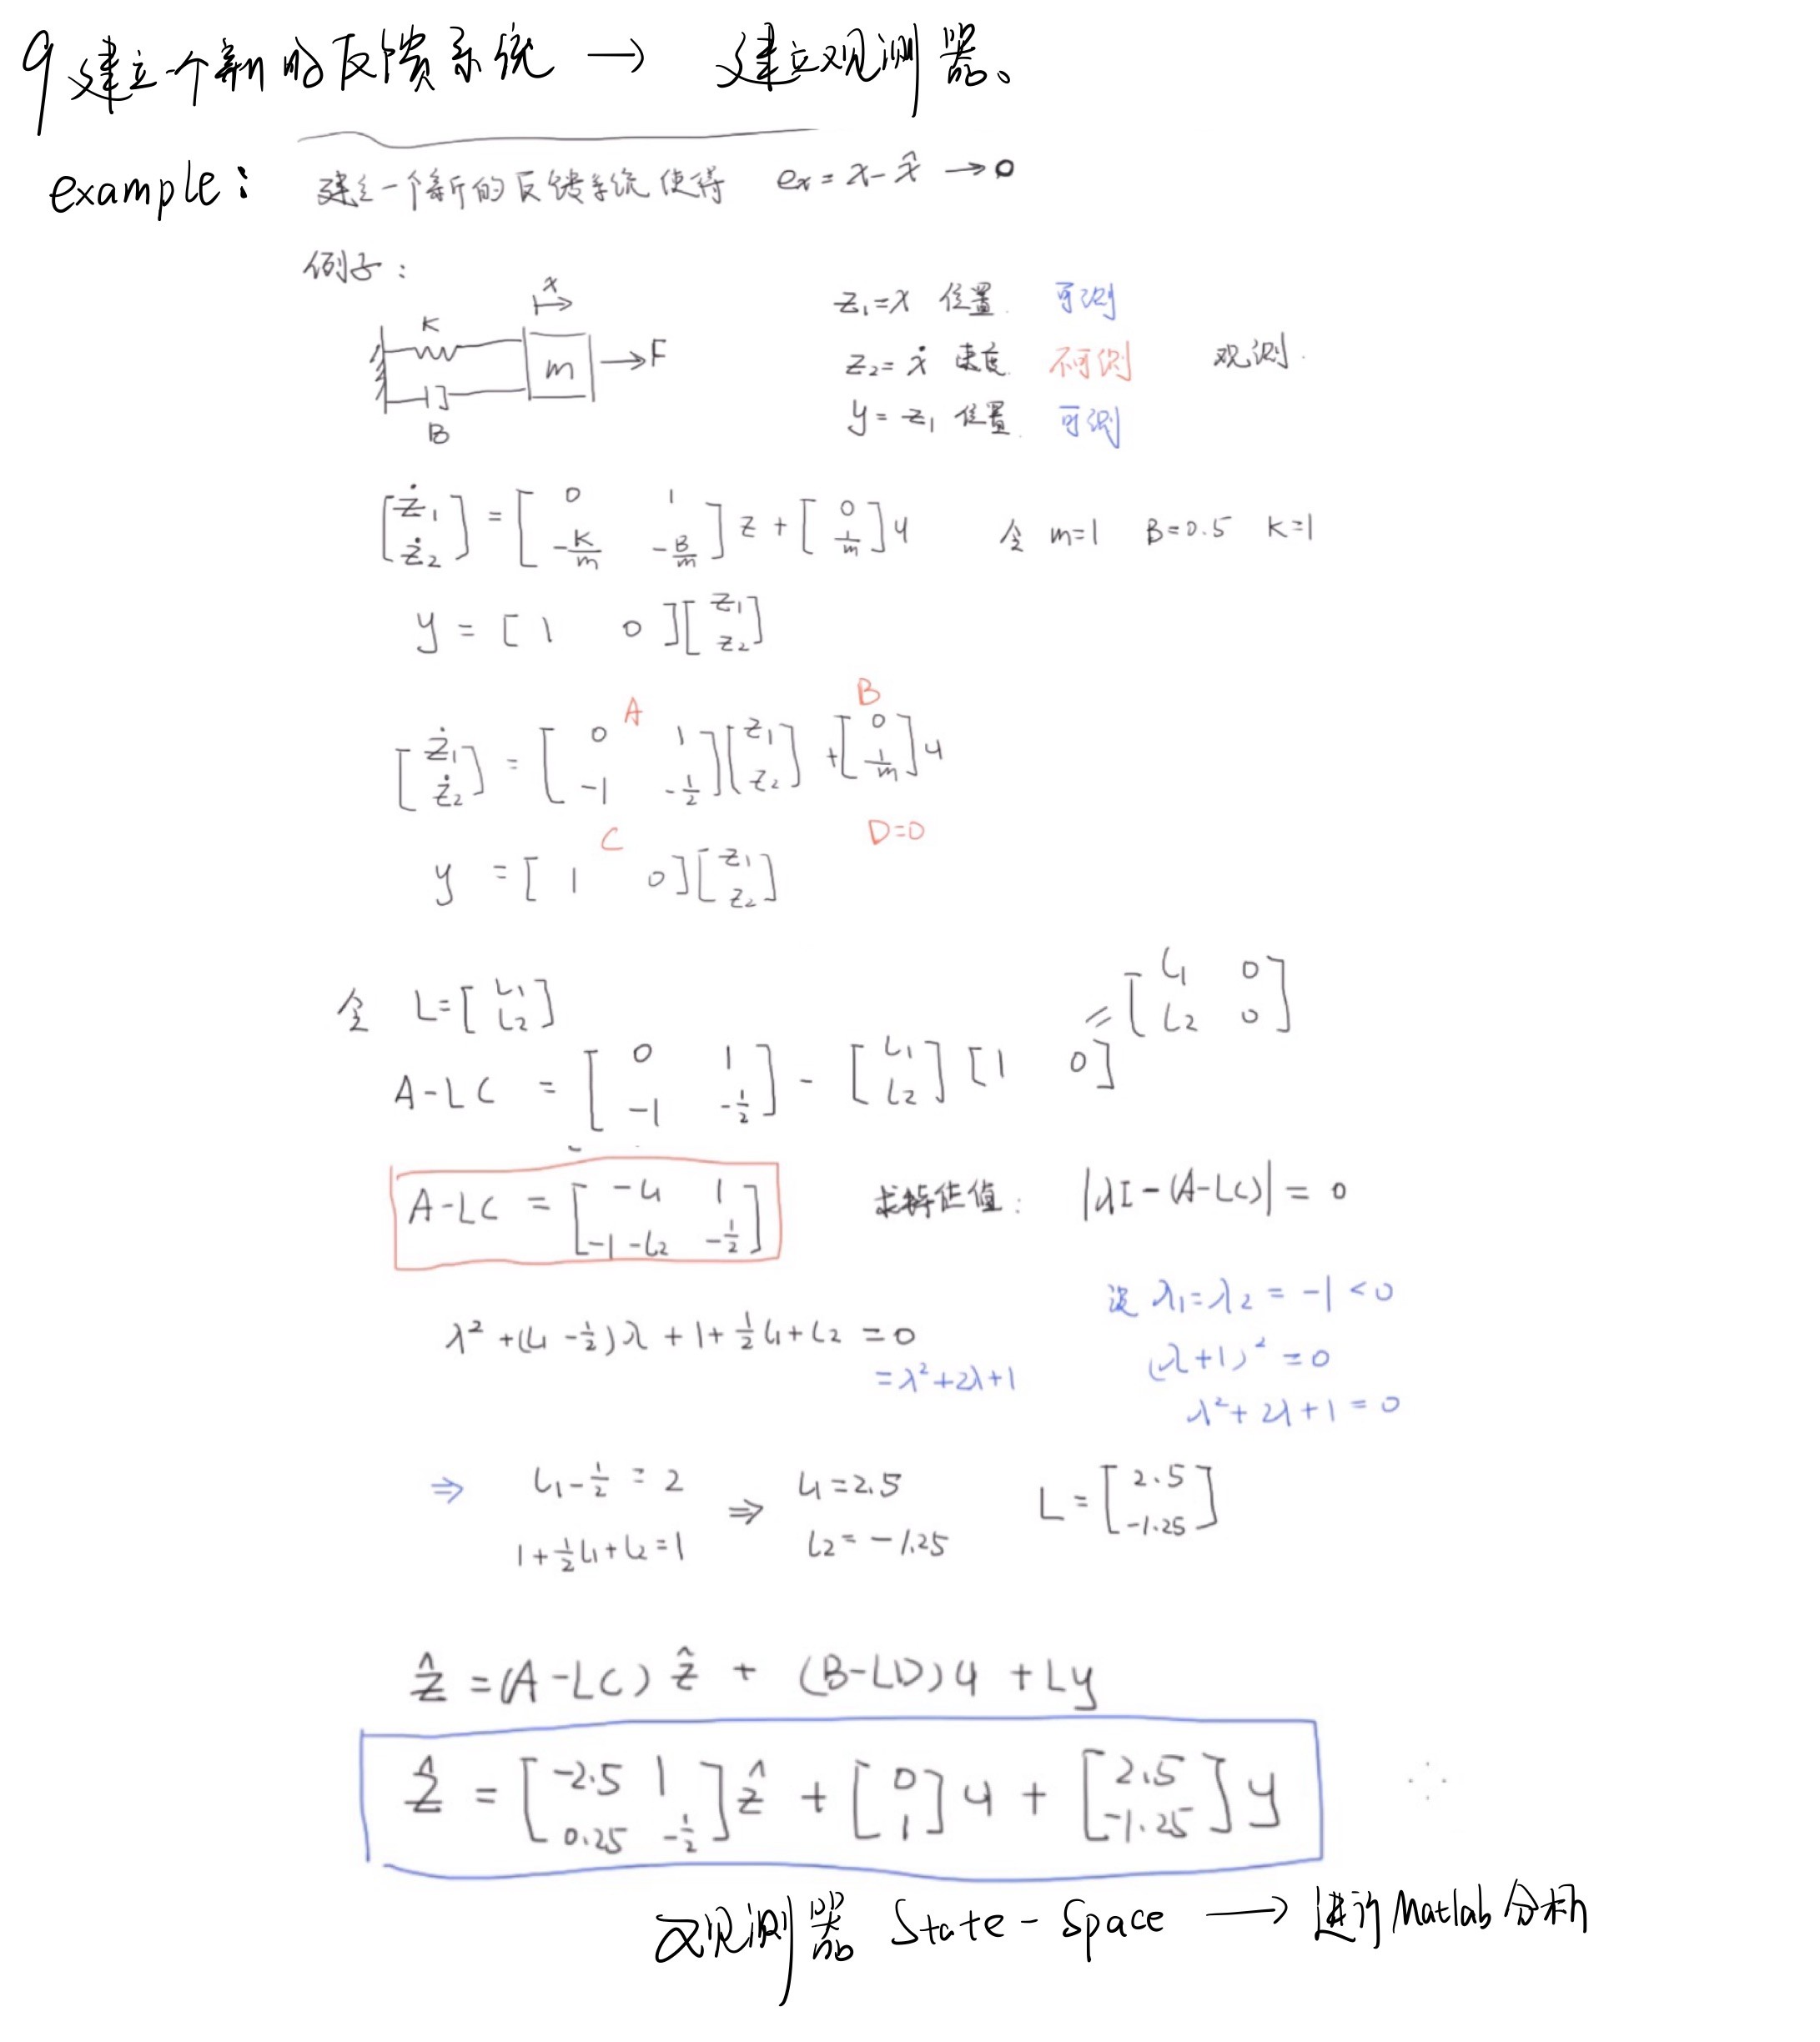 9 建立一个新的反馈系统 → 建立观测器。
example: 建立一个新的反馈系统 使得 eₓ = x - x̂ → 0
例子:
x
K
m → F
B
z₁ = x 位置 可测
z₂ = ẋ 速度 不可测 观测.
y = z₁ 位置 可测
[ż₁; ż₂] = [0 1; -K/m -B/m] z + [0; 1/m] u 令 m=1 B=0.5 K=1
y = [1 0][z₁; z₂]
A B
[ż₁; ż₂] = [0 1; -1 -1/2][z₁; z₂] + [0; 1/m] u
C D=0
y = [1 0][z₁; z₂]
令 L = [L₁; L₂]
= [L₁ 0; L₂ 0]
A-LC = [0 1; -1 -1/2] - [L₁; L₂][1 0]
A-LC = [-L₁ 1; -1-L₂ -1/2] 求特征值: |λI-(A-LC)| = 0
设 λ₁=λ₂ = -1 < 0
λ² + (L₁ - 1/2)λ + 1 + 1/2 L₁ + L₂ = 0
(λ+1)² = 0
= λ²+2λ+1
λ²+2λ+1 = 0
⇒ L₁ - 1/2 = 2 ⇒ L₁ = 2.5 L = [2.5; -1.25]
1 + 1/2 L₁ + L₂ = 1 L₂ = -1.25
ẑ = (A-LC) ẑ + (B-LD) u + Ly
ẑ = [-2.5 1; 0.25 -1/2] ẑ + [0; 1] u + [2.5; -1.25] y
观测器 State-Space → 进行Matlab分析